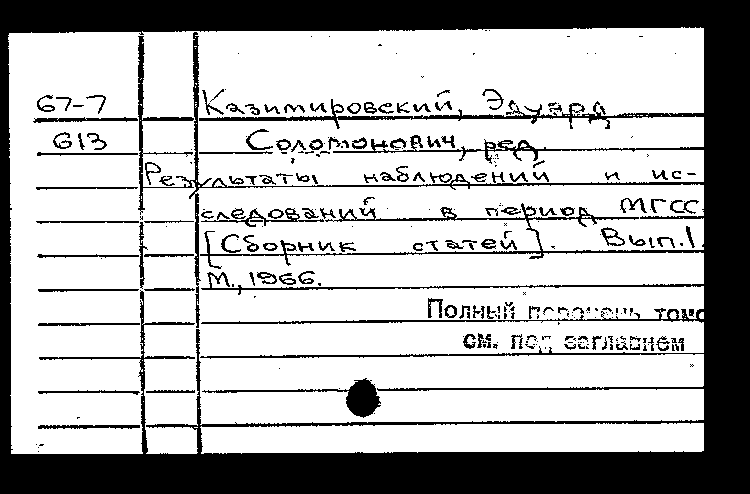 67-7 Казимировский, Эдуард
613 Соломонович, ред.
Результаты наблюдений и ис-
следований в период МГСС.
[Сборник статей]. Вып.1.
М., 1966.
Полный перечень томо
см. под заглавием